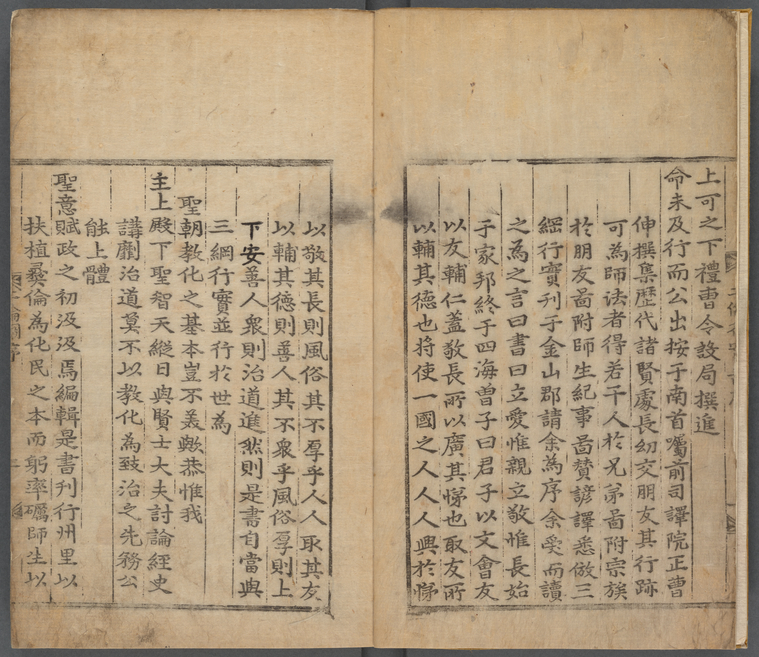 上可之下禮曹令設局撰進
命未及行而公出按于南首囑前司譯院正曹
伸撰集歷代諸賢處長幼交朋友其行跡
可為師法者得若干人於兄弟啚附宗族
於朋友啚附師生紀事啚賛諺譯悉倣三
綱行實刊于金山郡請余為序余受而讀
之為之言曰書曰立愛惟親立敬惟長始
于家邦終于四海曾子曰君子以文會友
以友輔仁蓋敬長所以廣其悌也取友所
以輔其德也将使一國之人人人興於悌
以敬其長則風俗其不厚乎人人取其友
以輔其德則善人其不衆乎風俗厚則上
下安善人衆則治道進然則是書自當與
三綱行實並行於世為
聖朝教化之基本豈不羙歟恭惟我
主上殿下聖智天縱日與賢士大夫討論經史
講劘治道莫不以教化為致治之先務公
能上體
聖意賦政之初汲汲焉編輯是書刊行州里以
扶植彛倫為化民之本而躬率礪師生以